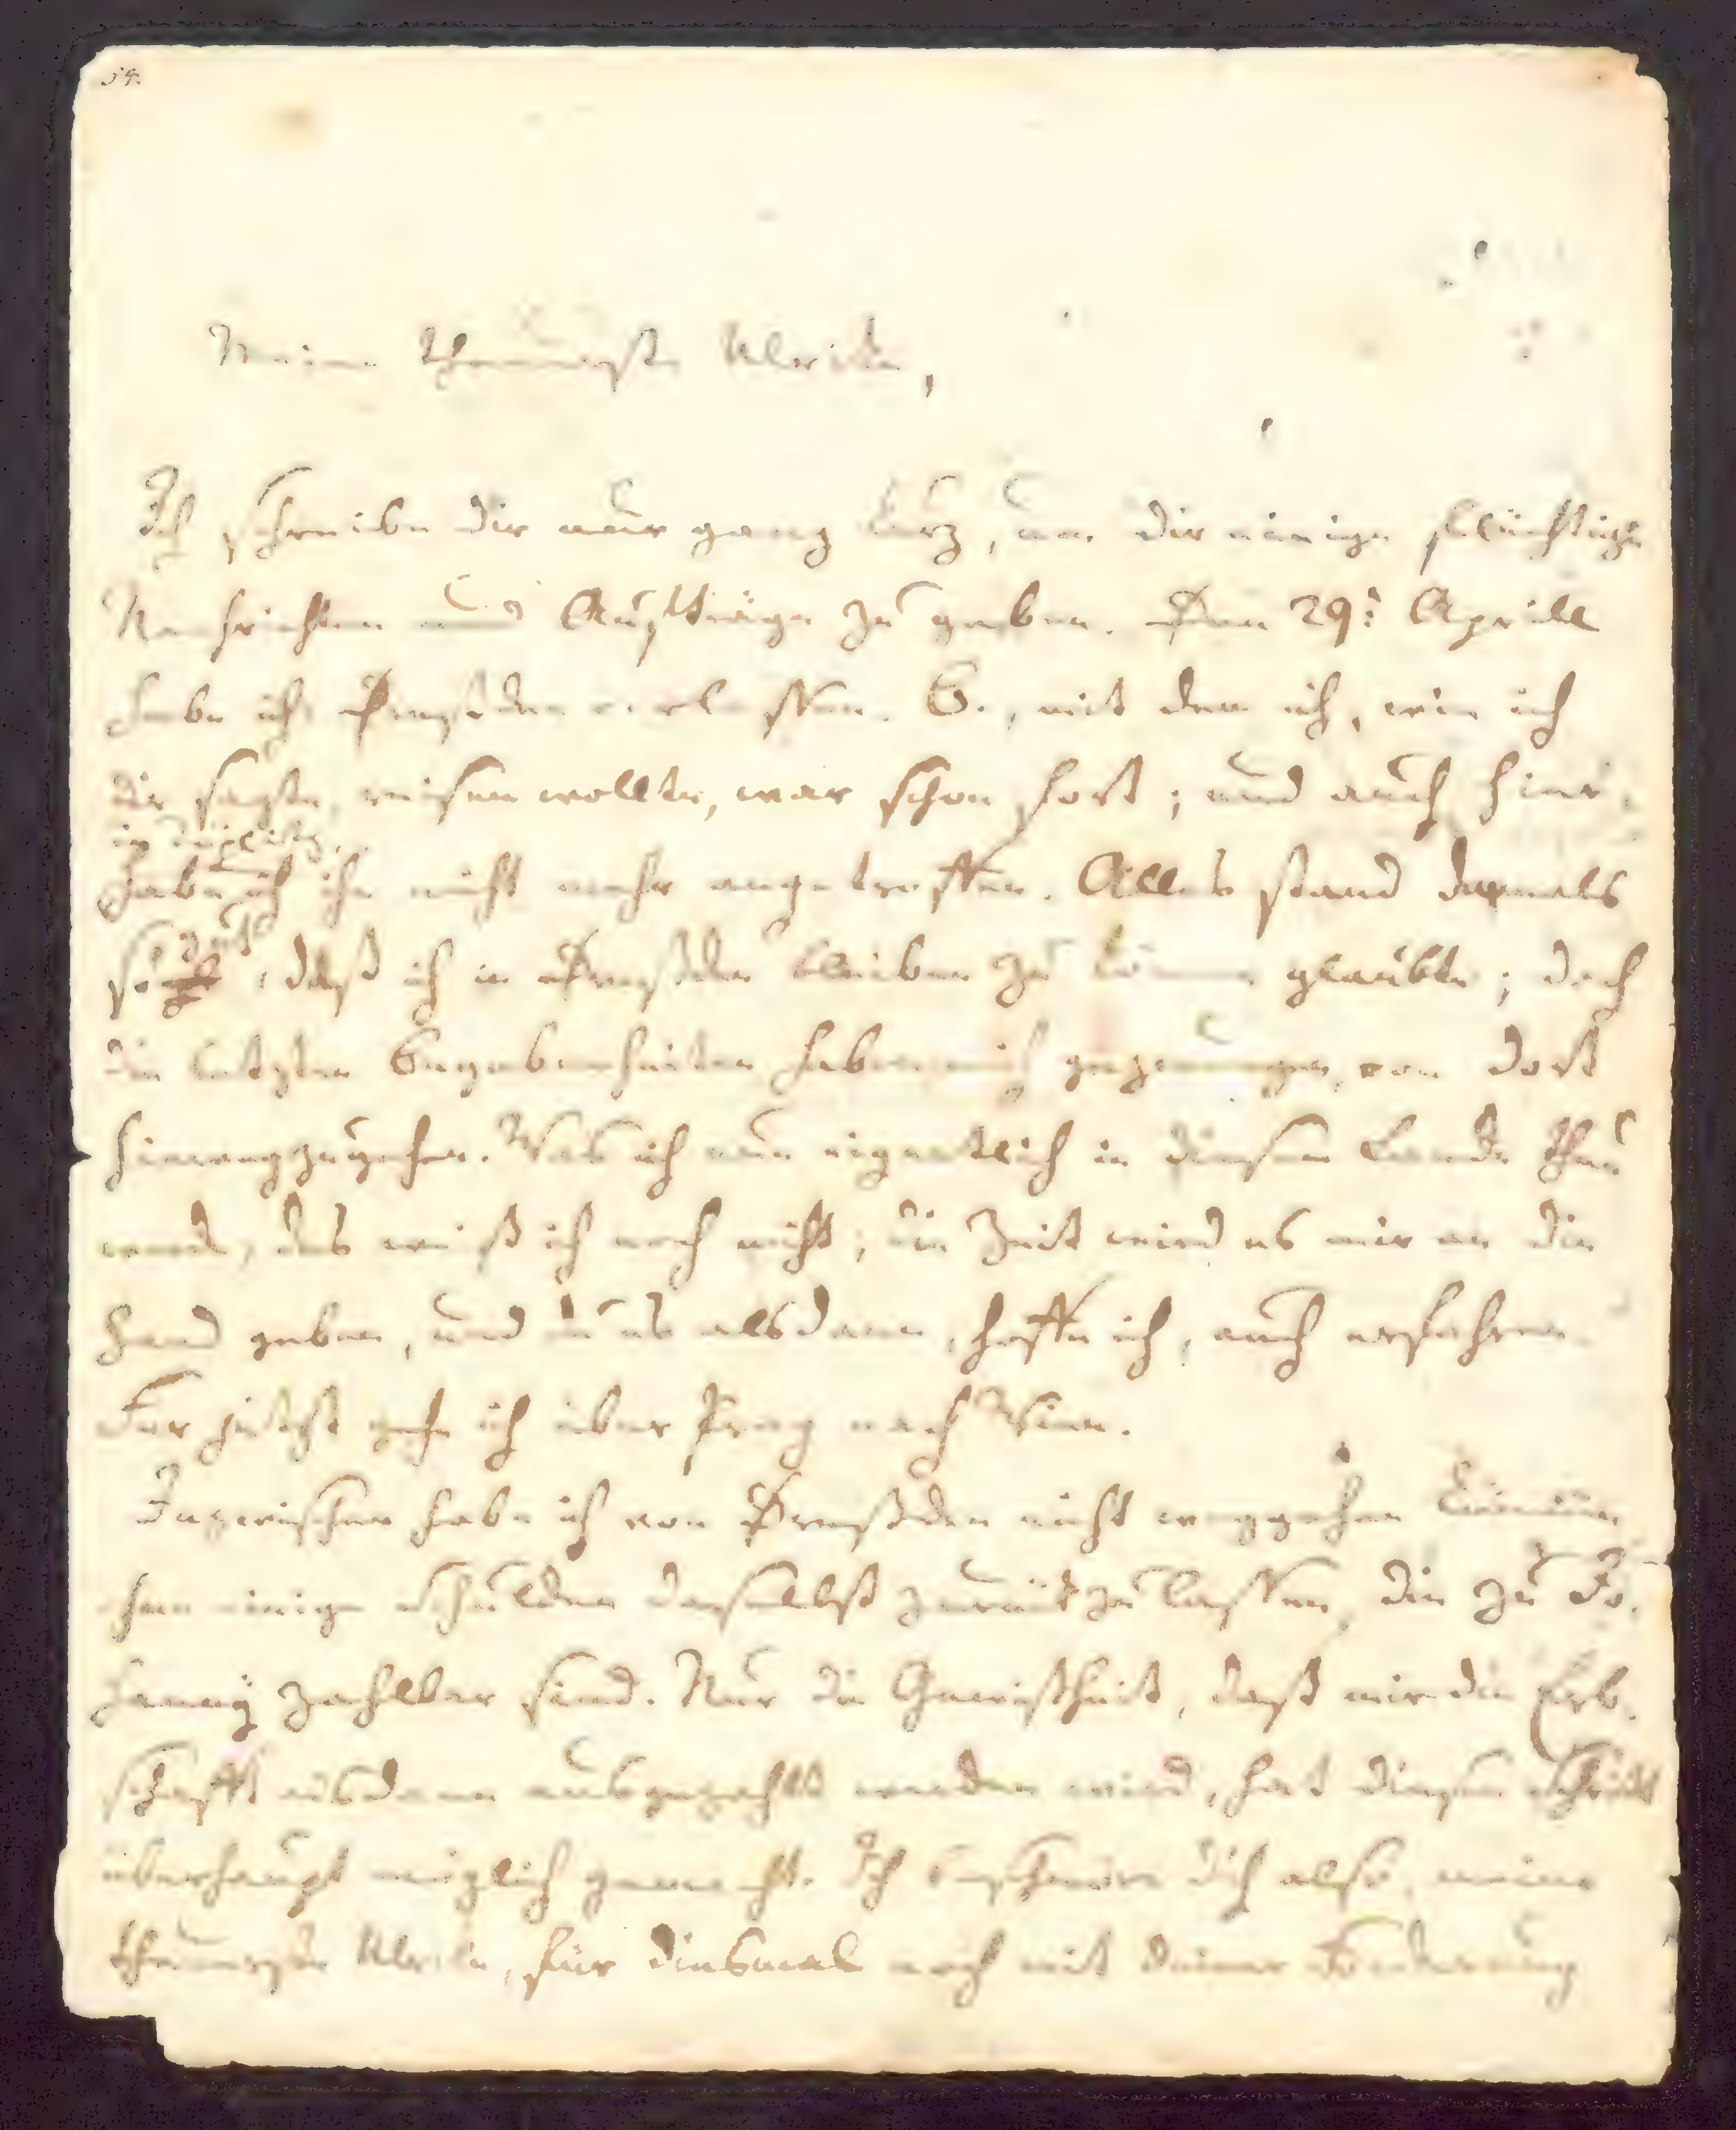 54.
Meine theuerste Ulrike,
Ich schreibe dir nur ganz kurz, um dir einige flüchtige
Nachrichten und Aufträge zu geben. Den 29t Aprill
habe ich Dreßden verlassen. B., mit dem ich, wie ich
dir sagte, reisen wollte, war schon fort; und auch hier,
in Töplitz,
habe ich ihn nicht mehr angetroffen. Alles stand damals
so gut, daß ich in Dreßden bleiben zu können glaubte; doch
die letzten Begebenheiten haben mich gezwungen, von dort
hinwegzugehen. Was ich nun eigentlich in diesem Lande thun
werde, das weiß ich noch nicht; die Zeit wird es mir an die
Hand geben, und du es alsdann, hoffe ich, auch erfahren.
Für jetzt gehe ich über Prag nach Wien.
Inzwischen habe ich von Dreßden nicht weggehen können
ohne einige Schulden daselbst zurückzulassen, die zu Jo-
hanny zahlbar sind. Nur die Gewißheit, daß mir die Erb-
schafft alsdann ausgezahlt werden wird, hat diesen Schritt
überhaupt möglich gemacht. Ich beschwöre dich also, meine
theuerste Ulrike, für diesmal noch mit deiner Forderung